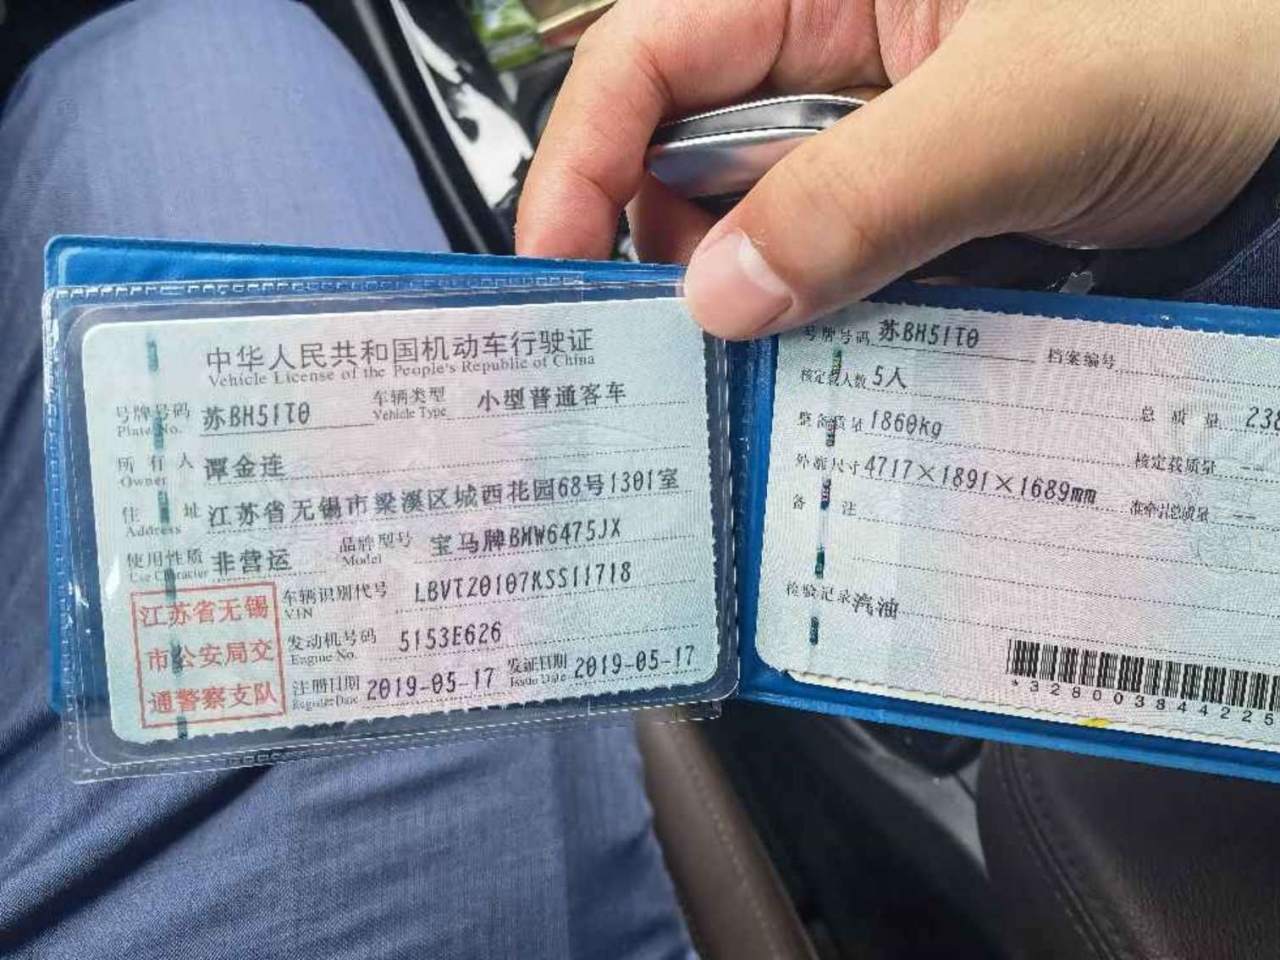 中华人民共和国机动车行驶证
Vehicle License of the People's Republic of China
号牌号码 苏BH51T0 车辆类型 小型普通客车
Plate No. Vehicle Type
所有人 谭金连
Owner
住址 江苏省无锡市梁溪区城西花园68号1301室
Address
使用性质 非营运 品牌型号 宝马牌BMW6475JX
Use Character Model
江苏省无锡
市公安局交
通警察支队
车辆识别代号 LBVTZ0107KSS11718
VIN
发动机号码 5153E626
Engine No.
注册日期 2019-05-17 发证日期 2019-05-17
Register Date Issue Date
号牌号码 苏BH51T0 档案编号
核定载人数 5人 总质量 238
整备质量 1860kg 核定载质量 --
外廓尺寸 4717×1891×1689mm 准牵引总质量 --
备注
检验记录 汽油
*328003844225